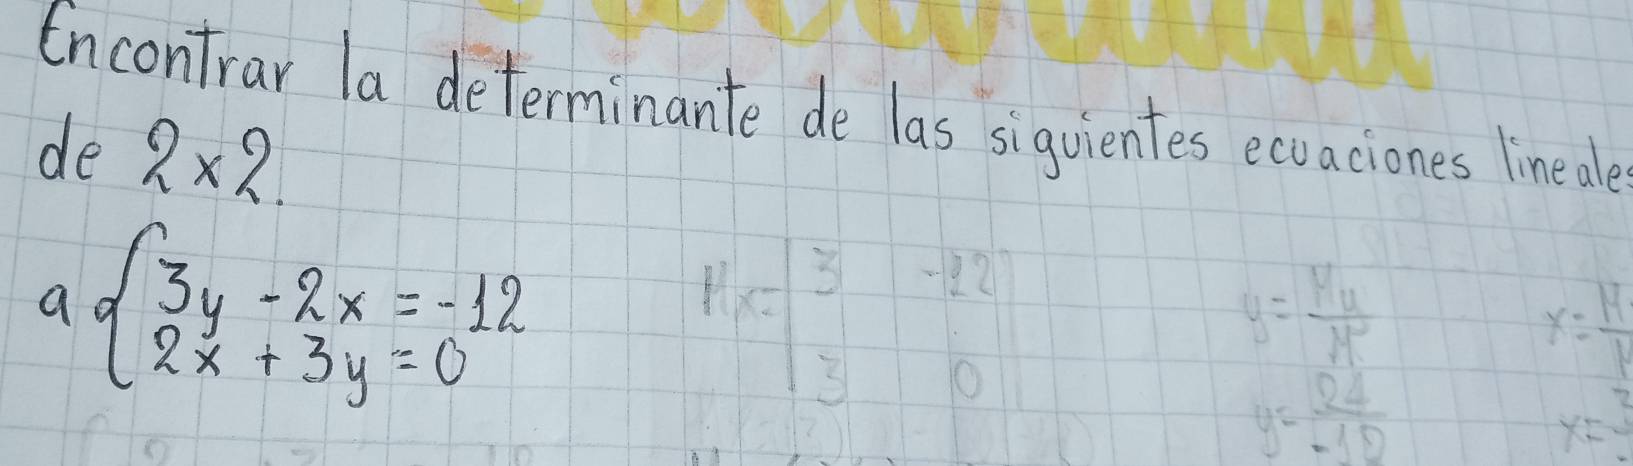 Encontrar la determinante de las siguientes ecuaciones lineales
de 2x2.
a { 3y - 2x = -12
2x + 3y = 0
3 -12
3 0
y = My / M
y = 24 / -12
x =
x =